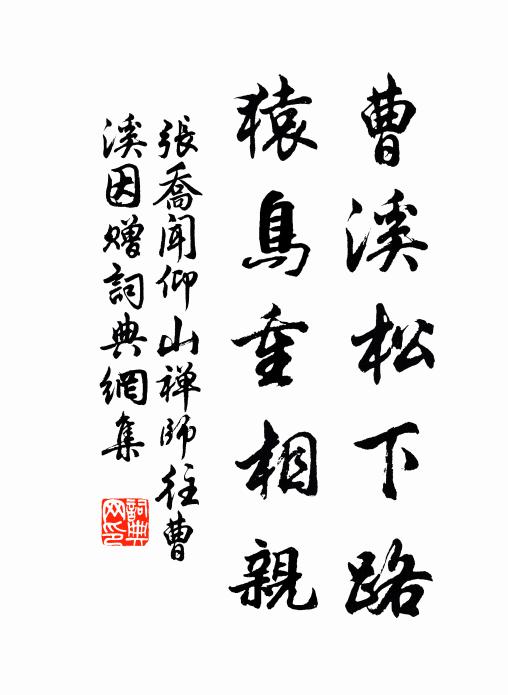 曹溪松下路
猿鳥重相親
張喬聞仰山禅師往曹
溪因贈詞典網集
詞典
网印